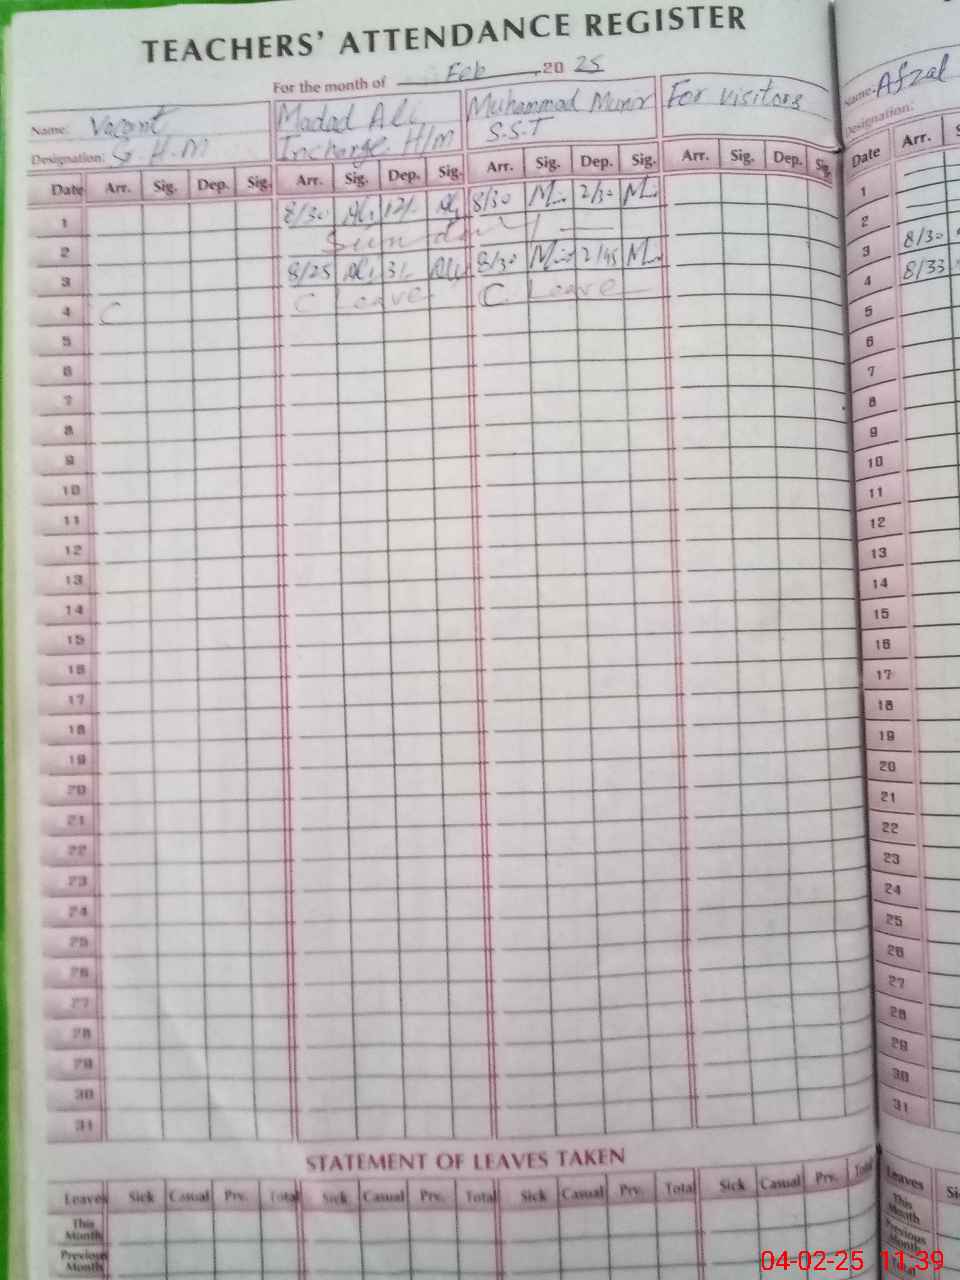 TEACHERS' ATTENDANCE REGISTER
For the month of Feb ,20 25
Name: Vacant Madad Ali Muhammad Munir For visitors
Designation: S.H.M Incharge H/M S.S.T
Date Arr. Sig. Dep. Sig. Arr. Sig. Dep. Sig. Arr. Sig. Dep. Sig. Arr. Sig. Dep. Sig.
1 8/30 Ali 12/- Ali 8/30 M 2/30 M
2 Sunday
3 8/25 Ali 3/- Ali 8/30 M 2/45 M
4 C C Leave C. Leave
5
6
7
8
9
10
11
12
13
14
15
16
17
18
19
20
21
22
23
24
25
26
27
28
29
30
31
STATEMENT OF LEAVES TAKEN
Leaves Sick Casual Prv. Total Sick Casual Prv. Total Sick Casual Prv. Total Sick Casual Prv. Total
This Month
Previous Month
Name: Afzal
Designation:
Date Arr.
1
2
3 8/30
4 8/33
5
6
7
8
9
10
11
12
13
14
15
16
17
18
19
20
21
22
23
24
25
26
27
28
29
30
31
Leaves
This Month
Previous Month
Total
04-02-25 11:39